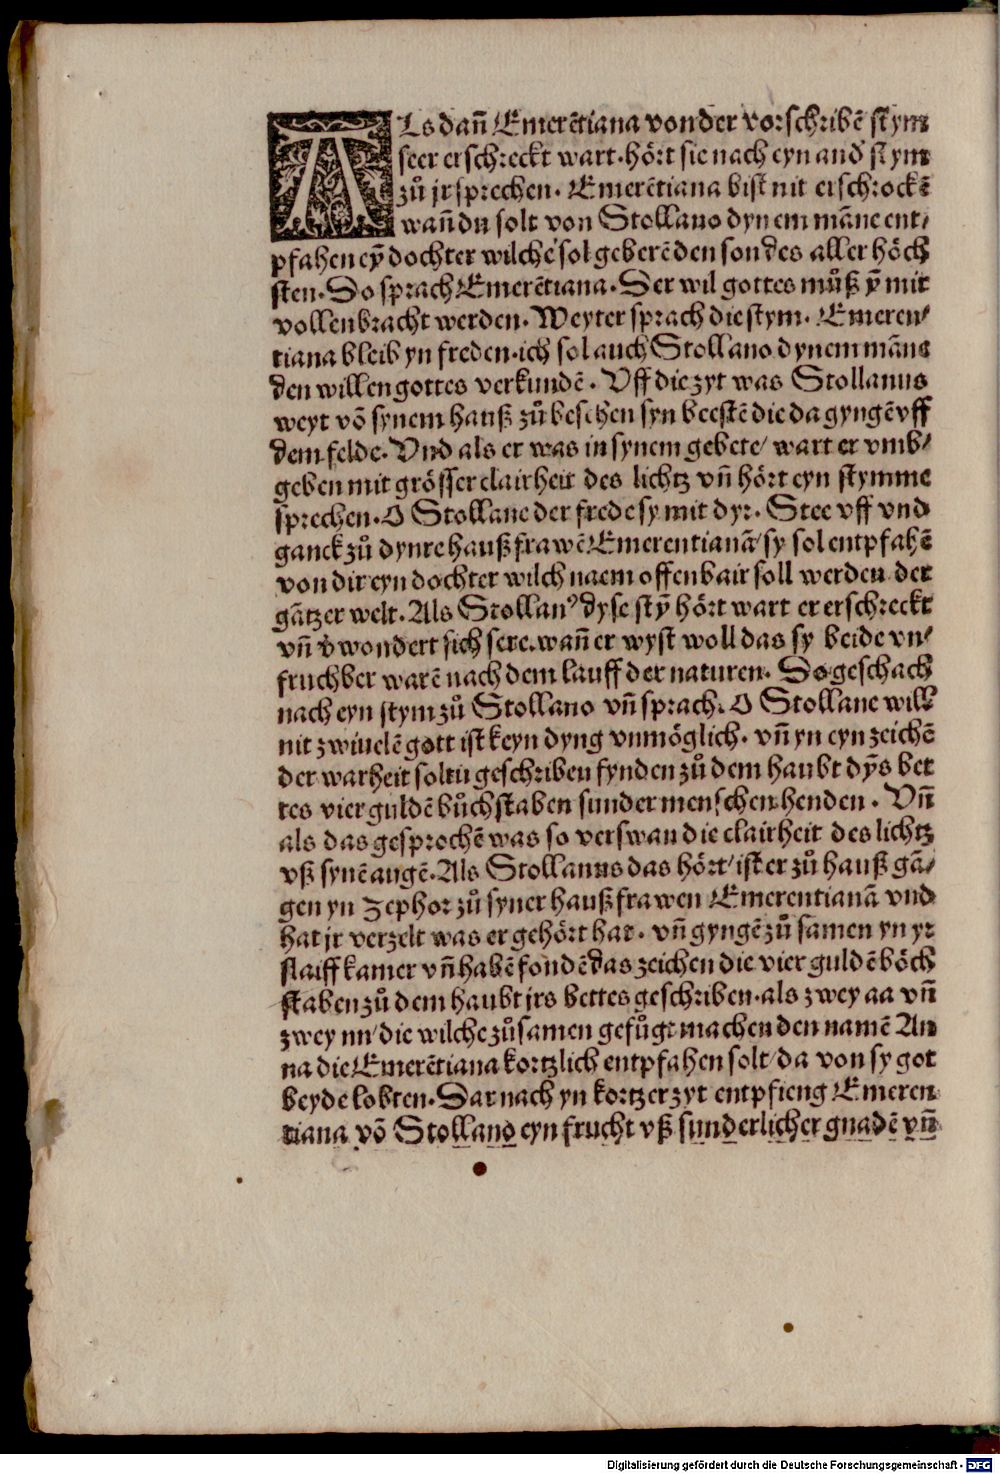 ALs dañ Emerẽtiana von der vorschribẽ stym
seer erschreckt wart. hört sie nach eyn and' stym
zů jr sprechen. Emerẽtiana bist nit erschrockẽ
wañ du solt von Stollano dynem mãne ent/
pfahen eỹ dochter wilche sol geberẽ den son des aller höch
sten. Do sprach Emerẽtiana. Der wil gottes můß ỹ mir
vollenbracht werden. Weyter sprach die stym. Emeren/
tiana bleib yn freden. ich sol auch Stollano dynem mãne
den willen gottes verkundẽ. Vff die zyt was Stollanus
weyt võ synem hauß zů besehen syn beestẽ die da gyngẽ vff
dem felde. Vnd als er was in synem gebete/ wart er vmb/
geben mit grösser clairheit des lichtz vñ hört eyn stymme
sprechen. O Stollane der frede sy mit dyr. Stee vff vnd
ganck zů dynre haußfrawẽ Emerentianã/ sy sol entpfahẽ
von dir eyn dochter wilch naem offenbair soll werden der
gãtzer welt. Als Stollanꝰ dyse stỹ hört wart er erschreckt
vñ v'wondert sich sere. wañ er wyst woll das sy beide vn/
fruchber warẽ nach dem lauff der naturen. Do geschach
nach eyn stym zů Stollano vñ sprach. O Stollane will
nit zwiuelẽ gott ist keyn dyng vnmöglich. vñ yn eyn zeichẽ
der warheit soltu geschriben fynden zů dem haubt dỹs bet
tes vier guldẽ bůchstaben sunder menschen henden. Vñ
als das gesprochẽ was so verswan die clairheit des lichtz
vß synẽ augẽ. Als Stollanus das hört/ ist er zů hauß gã/
gen yn Zephor zů syner haußfrawen Emerentianã vnd
hat jr verzelt was er gehört hat. vñ gyngẽ zů samen yn yr
slaiffkamer vñ habẽ fondẽ das zeichen die vier guldẽ böch
staben zů dem haubt jrs bettes geschriben. als zwey aa vñ
zwey nn/ die wilche zůsamen gefůgt machen den namẽ An
na die Emerẽtiana kortzlich entpfahen solt/ da von sy got
beyde lobten. Dar nach yn kortzer zyt entpfieng Emeren
tiana võ Stollano eyn frucht vß sunderlicher gnadẽ vñ
Digitalisierung gefördert durch die Deutsche Forschungsgemeinschaft - DFG